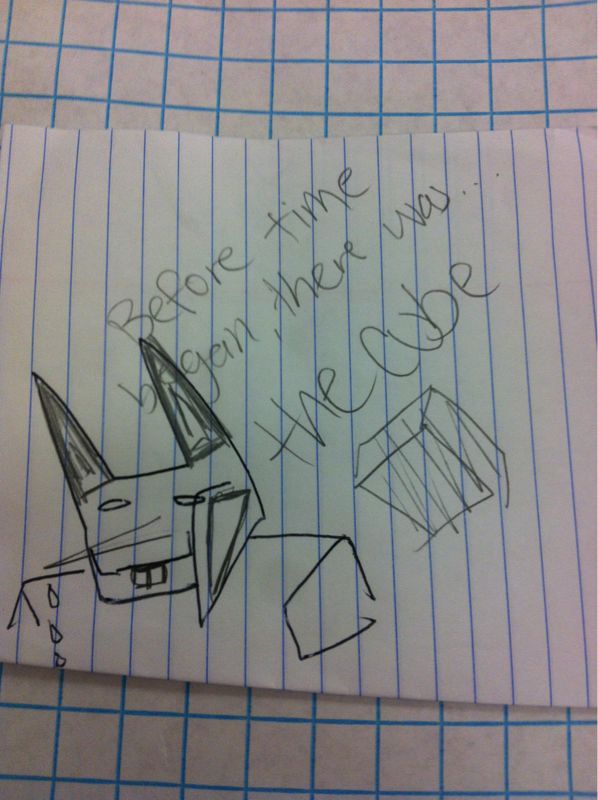 Before time
began, there was...
the Cube